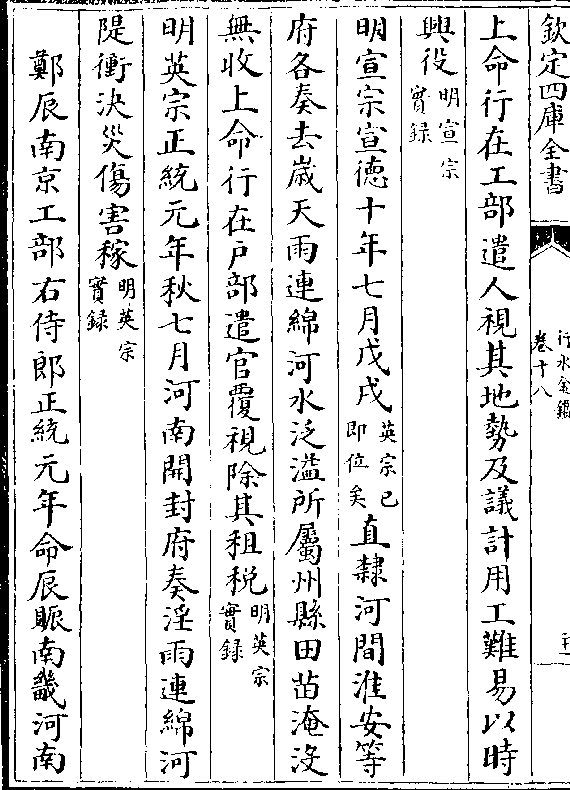 欽定四庫全書
行水金鑑
卷十八
上命行在工部遣人視其地勢及議計用工難易以時
興役明宣宗
實録
明宣宗宣徳十年七月戊戌英宗已
即位矣直隸河間淮安等
府各奏去嵗天雨連綿河水泛溢所屬州縣田苗淹没
無收上命行在戸部遣官覆視除其租税明英宗
實録
明英宗正統元年秋七月河南開封府奏淫雨連綿河
隄衝決災傷害稼明英宗
實録
鄭辰南京工部右侍郎正統元年命辰賑南畿河南